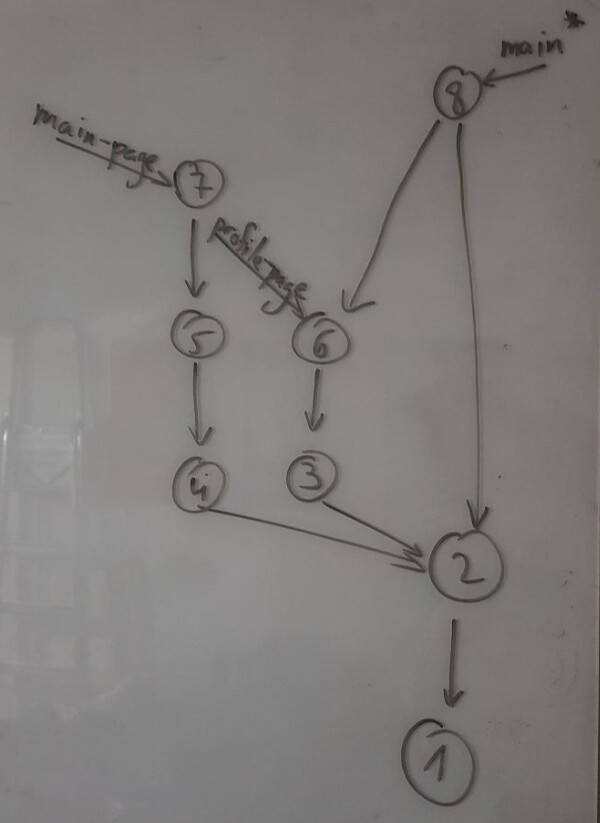 main*
8
main-page
7
profile-page
5
6
4
3
2
1